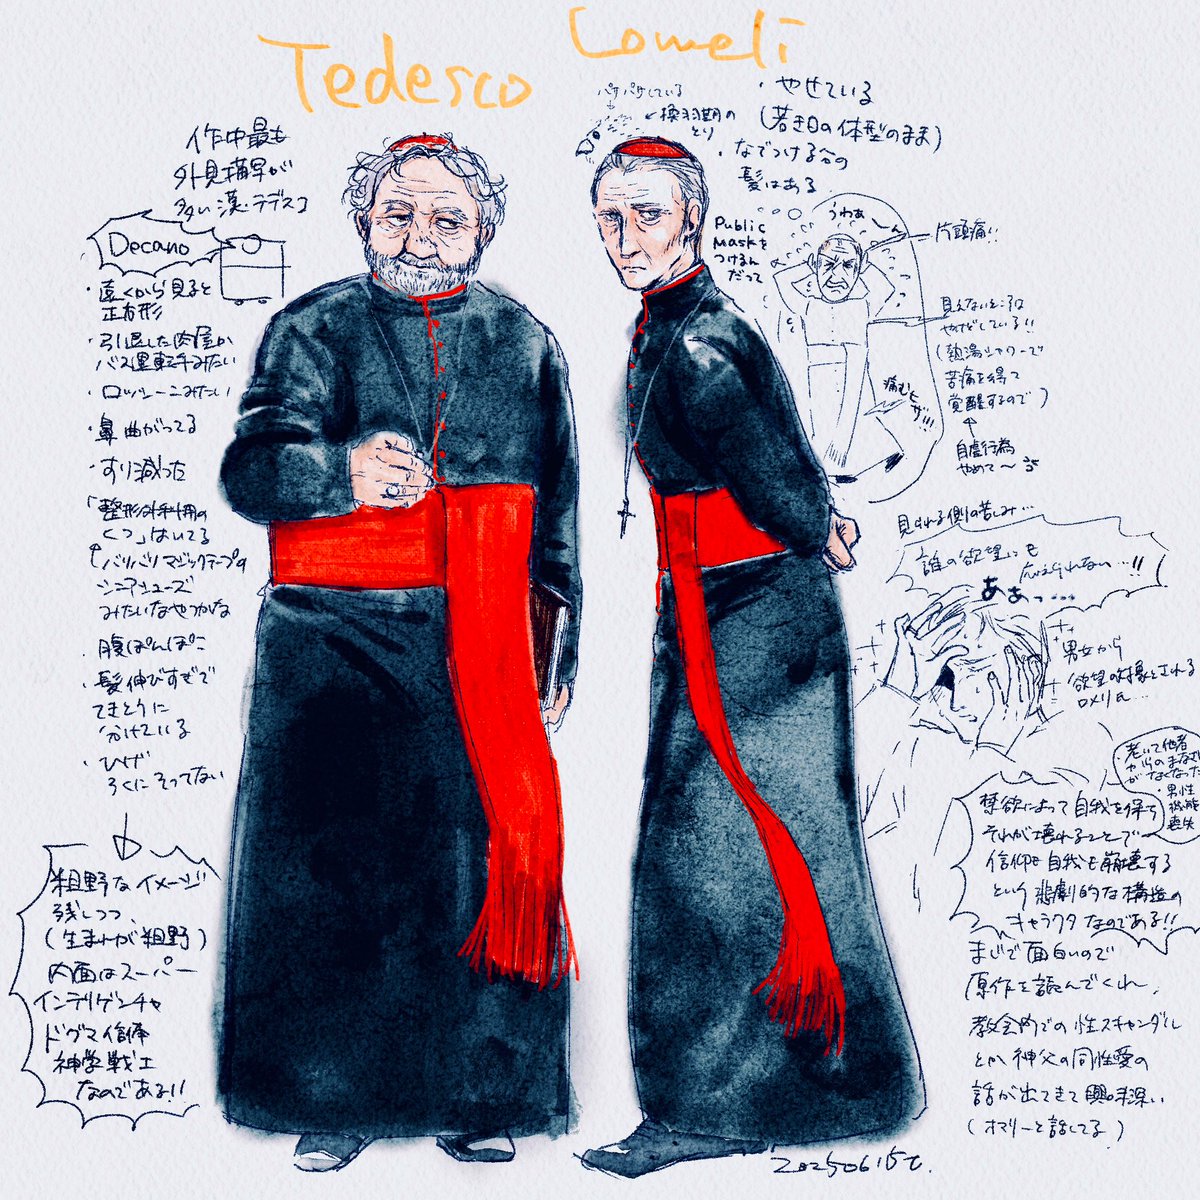 Tedesco
Lomeli
作中最も
外見描写が
多い漢・テデスコ
Decano
・遠くから見ると
正方形
・引退した肉屋か
バス運転手みたい
・ロッシーニみたい
・鼻曲がってる
・すり減った
「整形外科用の
くつ」はいてる
↑バリバリマジックテープの
シニアシューズ
みたいなやつかな
・腹ぽんぽこ
・髪伸びすぎで
てきとうに
分けている
・ひげ
ろくにそってない
粗野なイメージ
残しつつ、
(生まれが粗野)
内面はスーパー
インテリゲンチャ
ドグマ信奉
神学戦士
なのである!!
パサパサしている
←換羽期の
とり
・やせている
(若き日の体型のまま)
・なでつける分の
髪はある
Public
Maskを
つけるん
だって
うわぁ〜ん
片頭痛!!
見えないところは
やけどしている!!
(熱湯シャワーで
苦痛を得て
覚醒するので)
自虐行為
やめて〜
痛むヒザ!!!
見られる側の苦しみ…
誰の欲望にも
応えられない…!!
あぁっ…
男女から
欲望の対象とされる
ロメリ氏…
老いて他者
からのまなざし
がなくなった
・男性
機能
喪失
禁欲によって自我を保て
それが壊れることで
信仰も自我も崩壊する
という悲劇的な構造の
キャラクタなのである!!
まじで面白いので
原作を読んでくれ、
教会内での性スキャンダル
とか神父の同性愛の
話が出てきて興味深い
(オマリーと話してる)
20250615